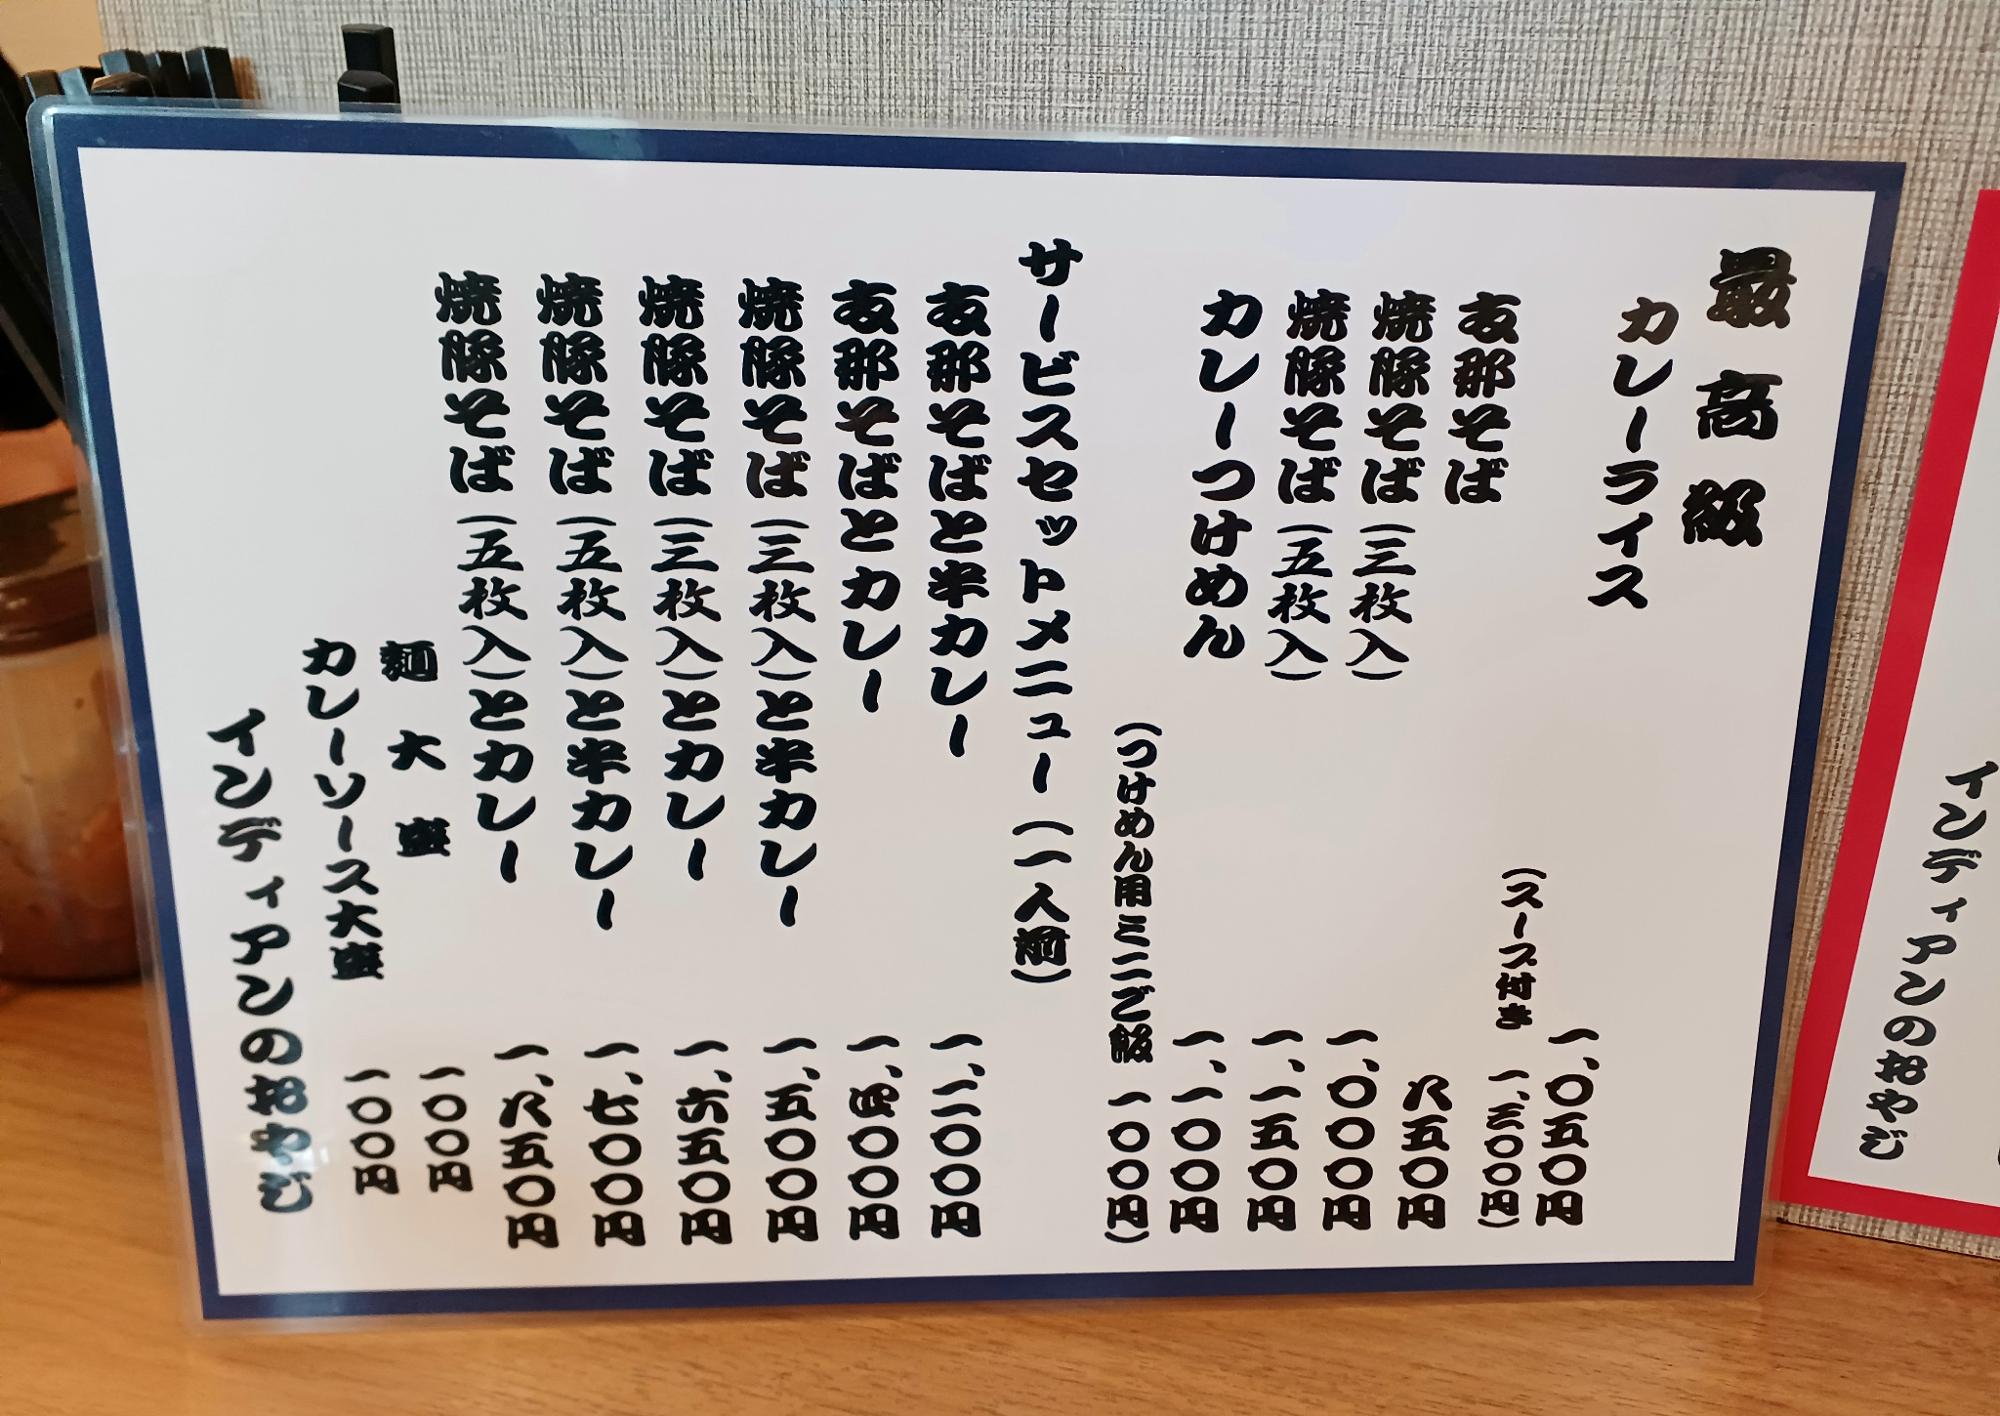 最高級
カレーライス 一、〇五〇円
(スープ付き 一、三〇〇円)
支那そば 八五〇円
焼豚そば(三枚入) 一、〇〇〇円
焼豚そば(五枚入) 一、一五〇円
カレーつけめん 一、一〇〇円
(つけめん用ミニご飯 一〇〇円)
サービスセットメニュー(一人前)
支那そばと半カレー 一、二〇〇円
支那そばとカレー 一、四〇〇円
焼豚そば(三枚入)と半カレー 一、五〇〇円
焼豚そば(三枚入)とカレー 一、六五〇円
焼豚そば(五枚入)と半カレー 一、七〇〇円
焼豚そば(五枚入)とカレー 一、八五〇円
麺大盛 一〇〇円
カレーソース大盛 一〇〇円
インディアンのおやじ
インディアンのおやじ